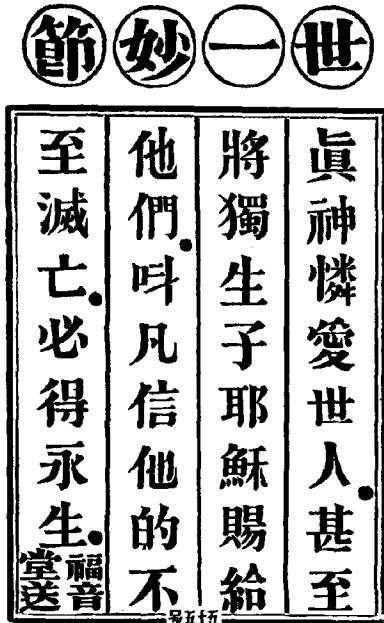 世一妙節
眞神憐愛世人。甚至
將獨生子耶穌賜給
他們。呌凡信他的不
至滅亡。必得永生。
福音
堂送